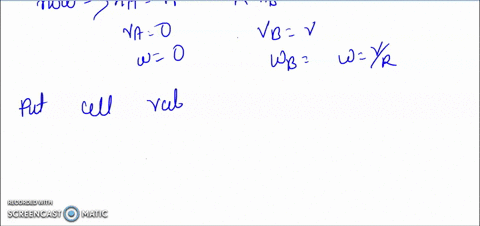 vA = 0 vB = v
w = 0 wB = w = v/R
Put cell valu
RECORDED WITH
SCREENCAST MATIC